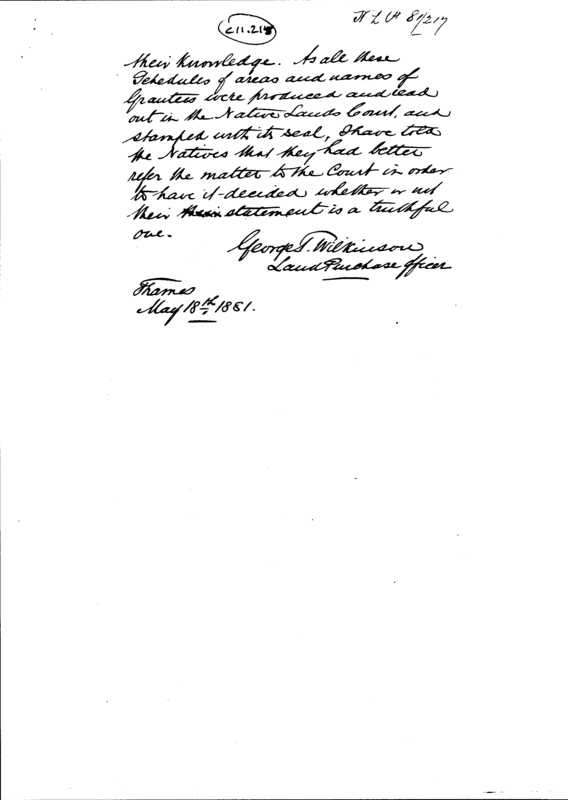 C11.215
N L P 81/217
their knowledge. As all these
Schedules of areas and names of
Grantees were produced and read
out in the Native Lands Court, and
stamped with its seal, I have told
the Natives that they had better
refer the matter to the Court in order
to have it decided whether or not
their statement is a truthful
one.
George T. Wilkinson
Land Purchase Officer
Thames
May 18th 1881.